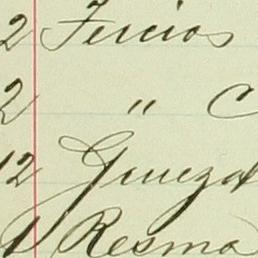 2 Tercios
2 " C
12 Gruezas
1 Resma